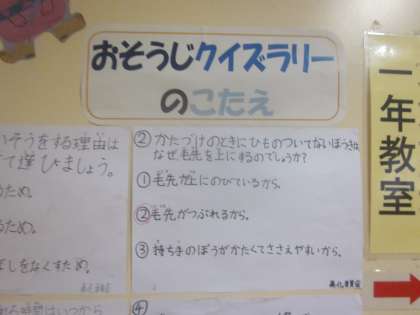 おそうじクイズラリー
のこたえ
一年教室
いそうをする理由は
て選びましょう。
るため。
るため。
をなくすため。
② かたづけのときにひものついてないほうきは
なぜ毛先を上にするのでしょうか?
① 毛先が上にのびているから。
② 毛先がつぶれるから。
③ 持ち手のぼうがかたくてささえやすいから。
④